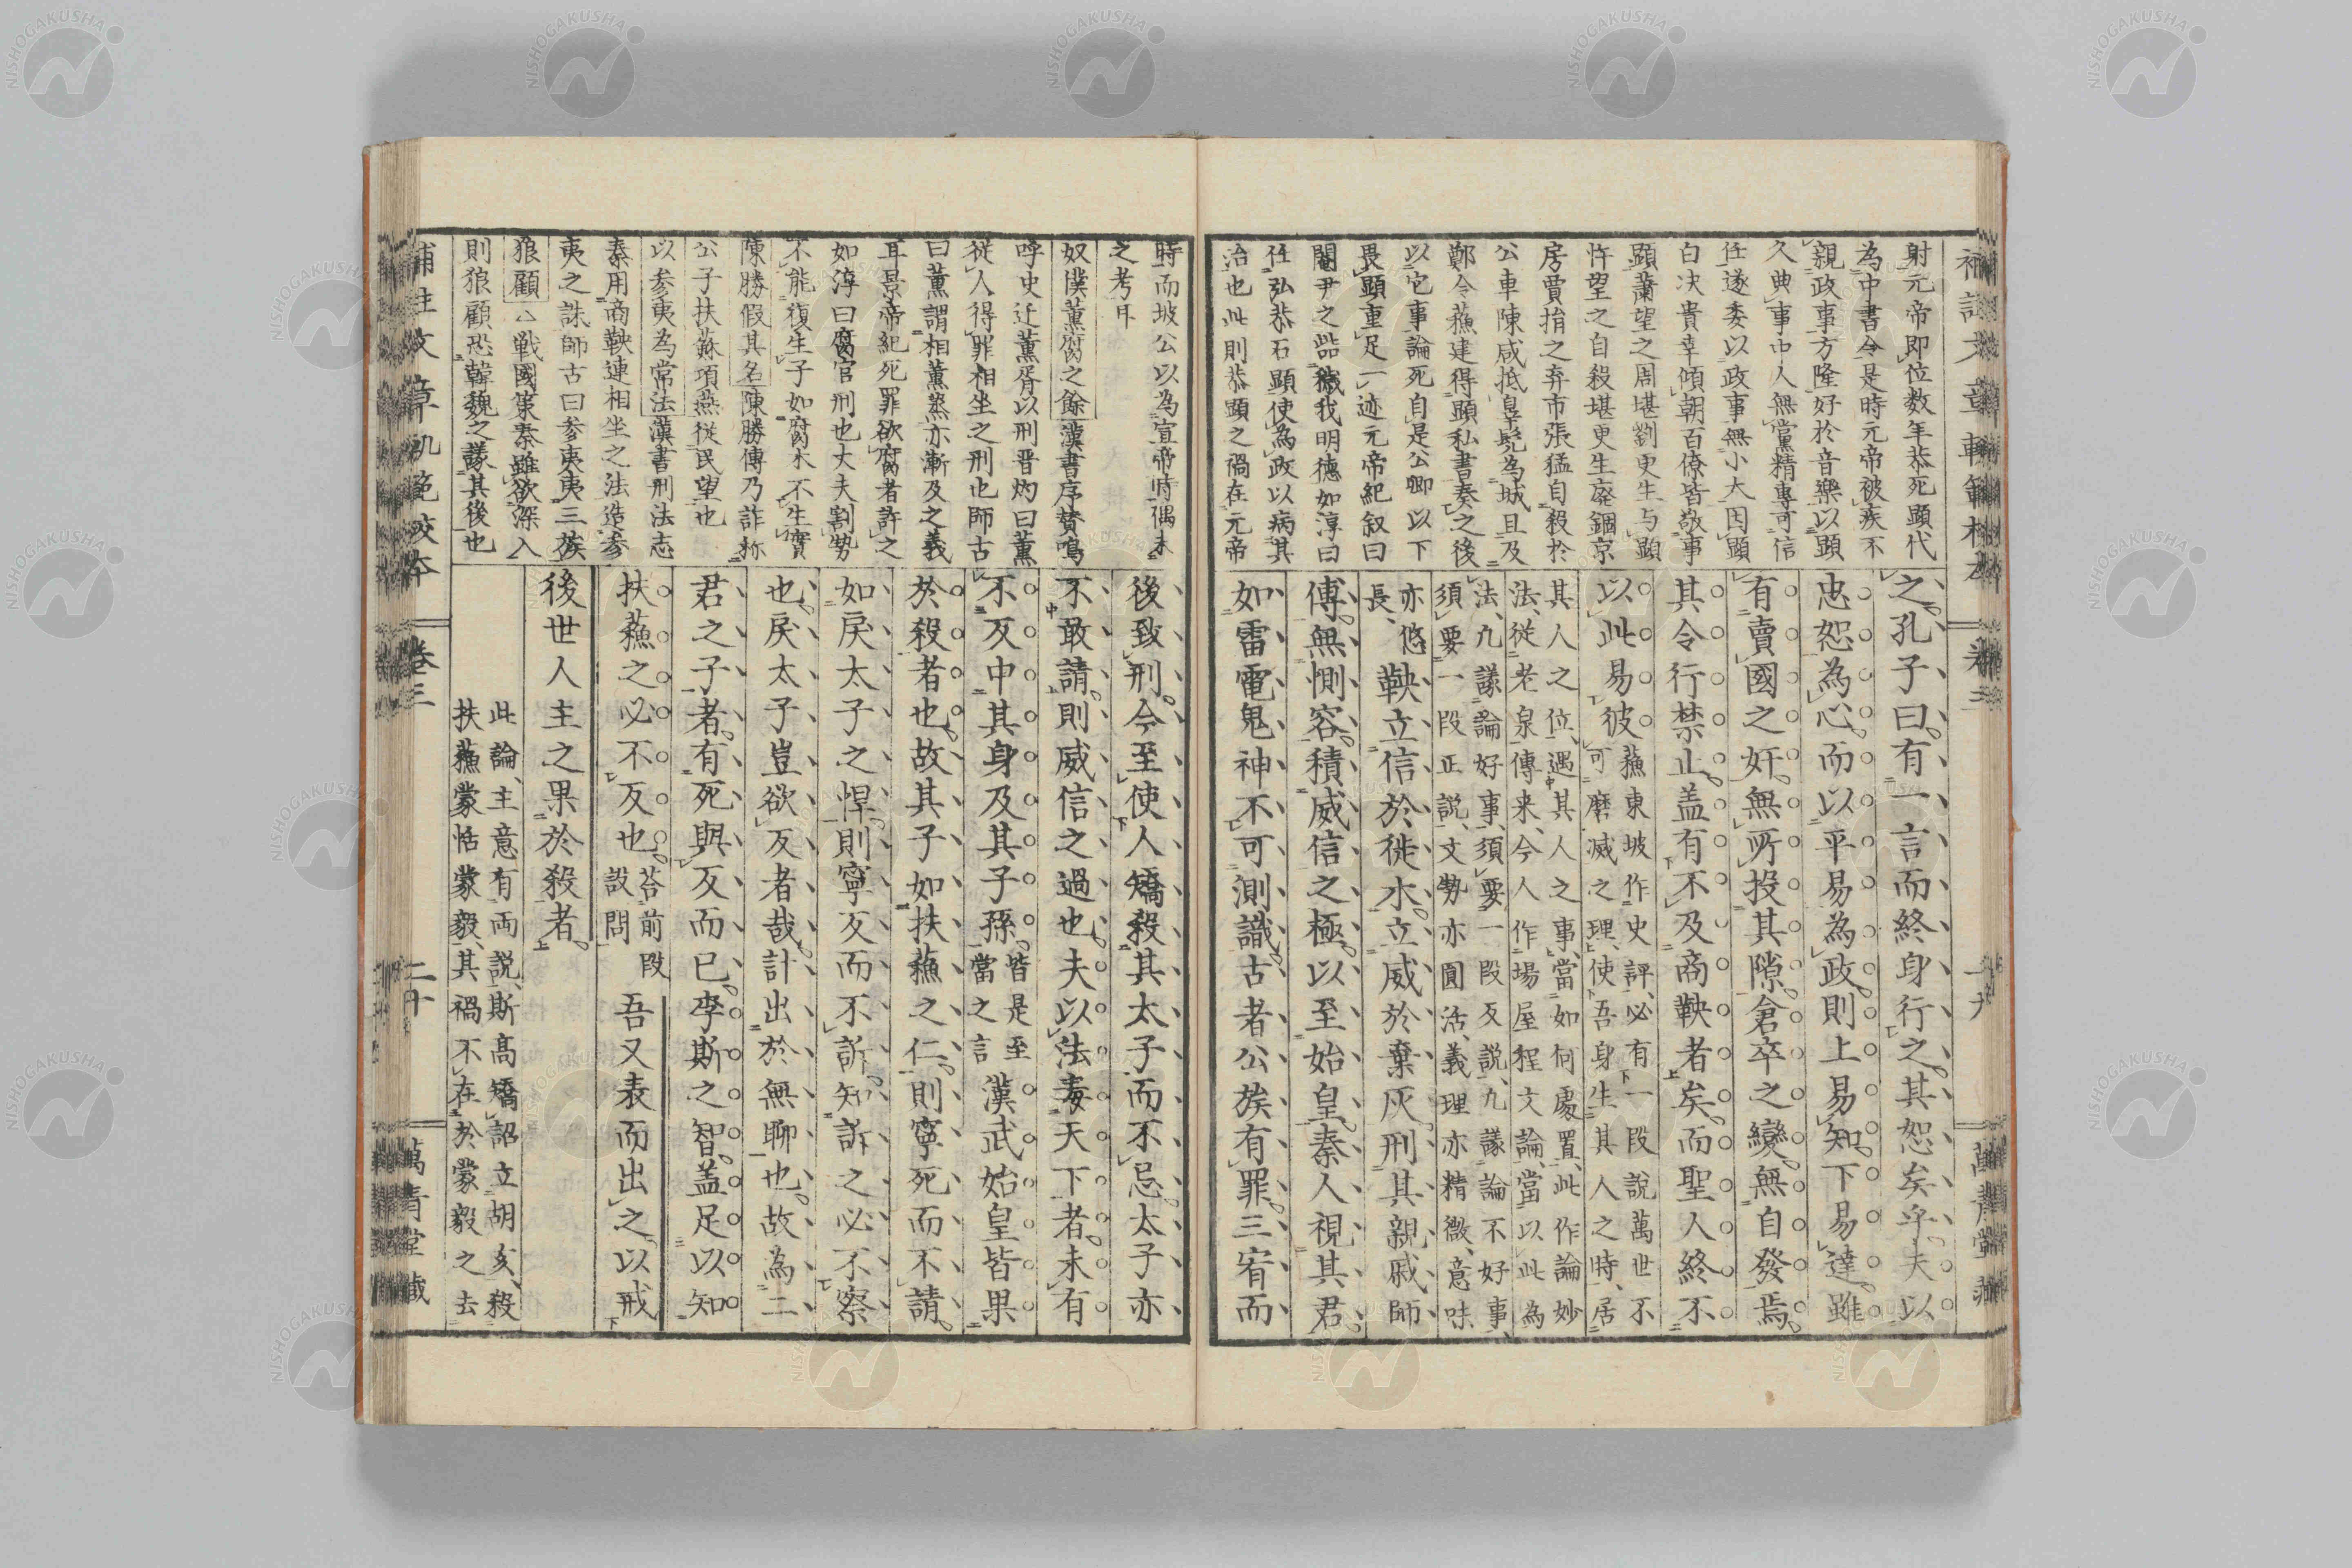 補註文章軌範校本 卷三 十九 萬青堂藏
射元帝即位数年恭死顯代
為中書令是時元帝被疾不
親政事方隆好於音樂以顕
久典事中人無黨精專可信
任遂委以政事無小大因顕
白决貴幸傾朝百僚皆敬事
顕蕭望之周堪劉更生与顕
忤望之自殺堪更生廢錮京
房賈捐之弃市張猛自殺於
公車陳咸抵辠髡為城旦及
鄭令蘓建得顕私書奏之後
以它事論死自是公卿以下
畏顕重足一迹元帝紀叙曰
閹尹之呰穢我明德如淳曰
任弘恭石顕使為政以病其
治也此則恭顕之禍在元帝
之孔子曰有一言而終身行之其恕矣乎夫以
忠恕為心而以平易為政則上易知下易達雖
有賣國之奸無所投其隙倉卒之變無自發焉
其令行禁止盖有不及商鞅者矣而聖人終不
以此易彼
蘓東坡作史評必有一段說萬世不
可磨滅之理使吾身生其人之時居
其人之位遇其人之事當如何處置此作論妙
法從老泉傳来今人作場屋程文論當以此為
法九議論好事須要一段反説九議論不好事
須要一段正説文勢亦圓活義理亦精微意味
亦悠
長
鞅立信於徙木立威於棄灰刑其親戚師
傅無惻容積威信之極以至始皇秦人視其君
如雷電鬼神不可測識古者公族有罪三宥而
時而坡公以為宣帝時偶未
之考耳
奴僕薫腐之餘漢書序賛嗚
呼史迁薫胥以刑晋灼曰薫
從人得罪相坐之刑也師古
曰薫謂相薫蒸亦漸及之義
耳景帝紀死罪欲腐者許之
如淳曰腐宮刑也丈夫割勢
不能復生子如腐木不生實
陳勝假其名陳勝傳乃詐称
公子扶蘇項燕從民望也
以参夷為常法漢書刑法志
秦用商鞅連相坐之法造参
夷之誅師古曰参夷夷三族
狼顧 戦國策秦雖欲深入
則狼顧恐韓魏之議其後也
後致刑今至使人矯殺其太子而不忌太子亦
不敢請則威信之過也夫以法毒天下者未有
不反中其身及其子孫
皆是至
當之言
漢武始皇皆果
於殺者也故其子如扶蘓之仁則寧死而不請
如戻太子之悍則寧反而不訴知訴之必不察
也戻太子豈欲反者哉計出於無聊也故為二
君之子者有死與反而已李斯之智盖足以知
扶蘓之必不反也
荅前段
設問
吾又表而出之以戒
後世人主之果於殺者
此論主意有両説斯高矯詔立胡亥殺
扶蘓蒙恬蒙毅其禍不在於蒙毅之去
補註文章軌範校本 卷三 二十 萬青堂藏